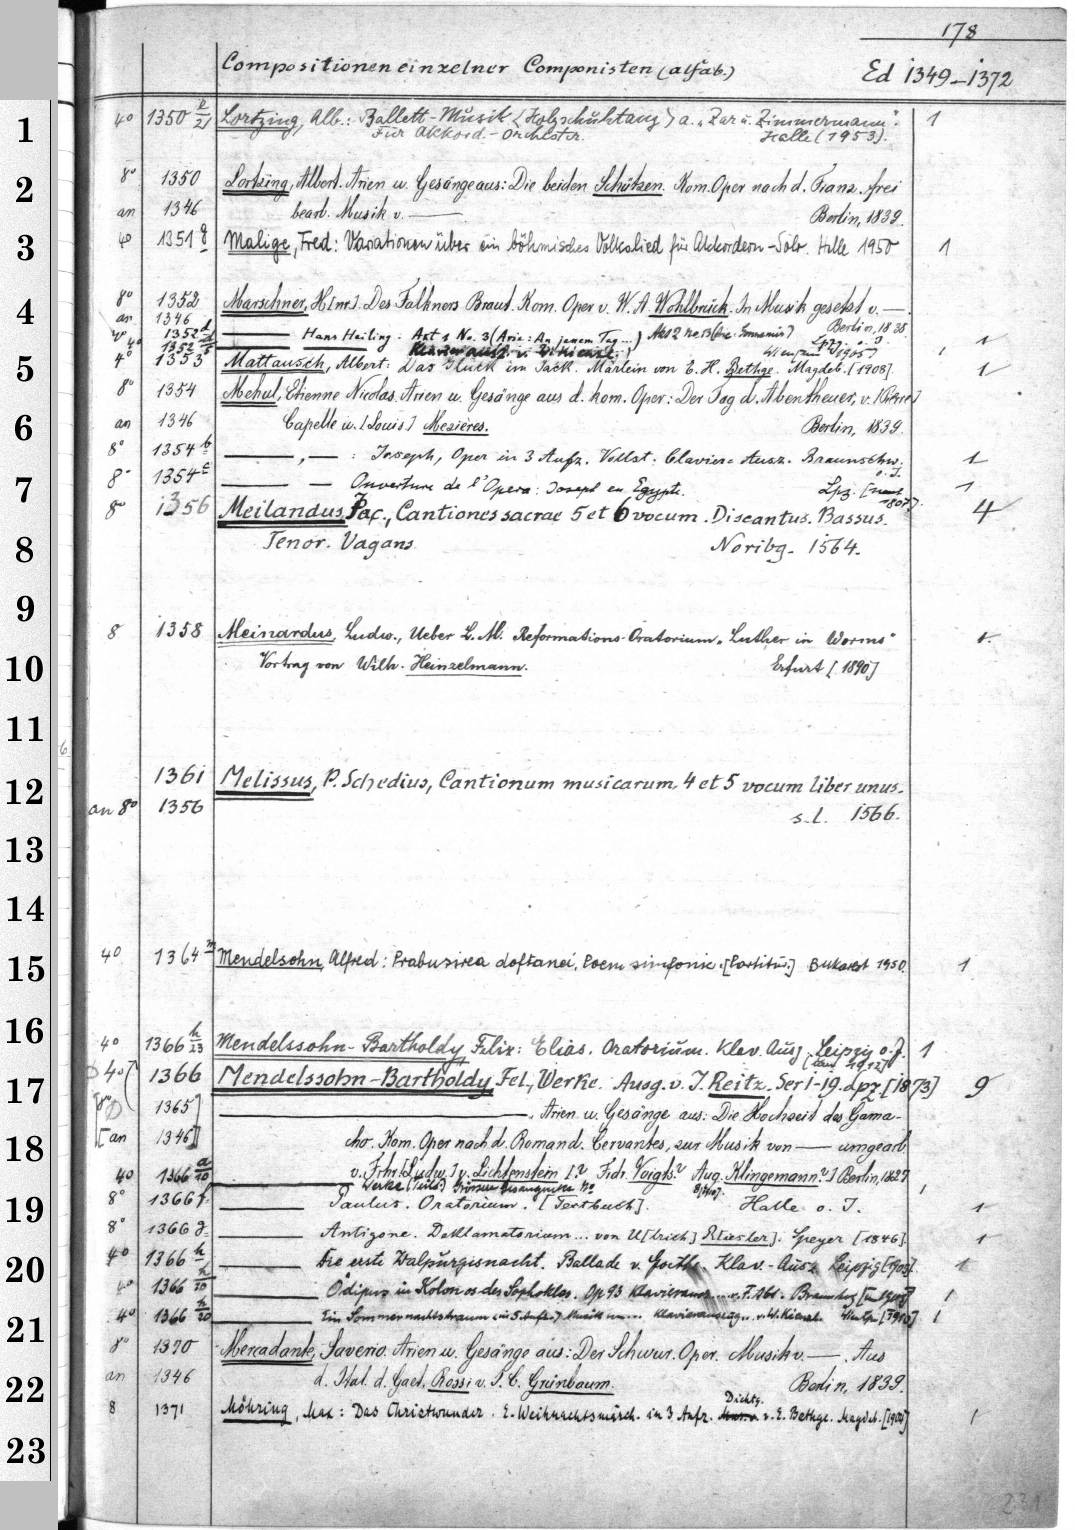 178
Compositionen einzelner Componisten (alfab.) Ed 1349-1372
1 4° 1350 Lortzing, Alb.: Ballett-Musik <Holzschuhtanz> a. „Zar u. Zimmermann". 1
Für Akkord.-Orchester. Halle (1953).
2 8° 1350 Lortzing, Albert. Arien u. Gesänge aus: Die beiden Schützen. Kom. Oper nach d. Franz. frei
an 1346 bearb. Musik v. — Berlin, 1839.
3 4° 1351 g Malige, Fred: Variationen über ein böhmisches Volkslied für Akkordeon-Solo. Halle 1950 1
4 8° 1352 Marschner, H[nr]. Des Falkners Braut. Kom. Oper v. W. A. Wohlbrück. In Musik gesetzt v. —.
an 1346 Berlin, 1838
4° 1352 d — Hans Heiling. Act 1 No. 3 (Arie: An jenem Tag...) 1
4° 1352 — Klavierausz. v. W. Kienzl.
5 4° 1353 Mattausch, Albert: Das Glück im Sack. Märlein von E. H. Bethge. Magdeb. [1908]. 1
8° 1354 Mehul, Etienne Nicolas. Arien u. Gesänge aus d. kom. Oper: Der Tag d. Abentheuer, v.
6 an 1346 Capelle u. [Louis] Mezières. Berlin, 1839
8° 1354 b — , — : Joseph, Oper in 3 Aufz. Vollst. Clavier-Ausz. Braunschw. o. J. 1
7 8° 1354 c — — Ouverture de l'Opera: Joseph en Egypte. Lpz. 1
8° 1356 Meilandus, Jac., Cantiones sacrae 5 et 6 vocum. Discantus. Bassus. 4
8 Tenor. Vagans. Noribg. 1564.
9
8 1358 Meinardus, Ludw., Ueber L. M. Reformations-Oratorium „Luther in Worms" 1.
10 Vortrag von Wilh. Heinzelmann. Erfurt [1890]
11
12 1361 Melissus, P. Schedius, Cantionum musicarum 4 et 5 vocum liber unus.
an 8° 1356 s. l. 1566.
13
14
15 4° 1364 m Mendelsohn, Alfred: Prabusirea doftanei. Poem simfonic. [Partitur.] Bukarest 1950. 1
16 4° 1366 h/23 Mendelssohn-Bartholdy, Felix: Elias. Oratorium. Klav. Ausz. Leipzig o. J. 1
17 4° 1366 Mendelssohn-Bartholdy, Fel., Werke. Ausg. v. J. Reitz. Ser 1-19. Lpz. [1873] 9
8° 1365 — . Arien u. Gesänge aus: Die Hochzeit des Gama-
18 [an 1346] cho. Kom. Oper nach d. Roman d. Cervantes, zur Musik von — umgearb.
4° 1366 a/10 v. Frhr. [Ludw.] v. Lichtenstein [? Fidr. Voigts? Aug. Klingemann?] Berlin, 1827
19 8° 1366 f. — Paulus. Oratorium. [Textbuch]. Halle o. J. 1
8° 1366 g. — Antigone. Deklamatorium... von U[lrich] R[iesler]. Speyer [1846]. 1
20 4° 1366 h — Die erste Walpurgisnacht. Ballade v. Goethe. Klav.-Ausz. Leipzig 1
4° 1366 h/10 — Ödipus in Kolonos des Sophokles. Op 93 Klavierausz... v. F. Abt. 1
21 4° 1366 h/20 — Ein Sommernachtstraum (in 5 Aufz.) Musik v.... Klavierauszug.. v. W. Kienzl. 1
8° 1370 Mercadante, Saverio. Arien u. Gesänge aus: Der Schwur. Oper. Musik v. —. Aus
22 an 1346 d. Ital. d. Gaet. Rossi v. J. C. Grünbaum. Berlin, 1839.
8 1371 Möhring, Max: Das Christwunder. E. Weihnachtsmärch. in 3 Aufz. Dichtg. v. E. Bethge. Magdeb. 1
23
231